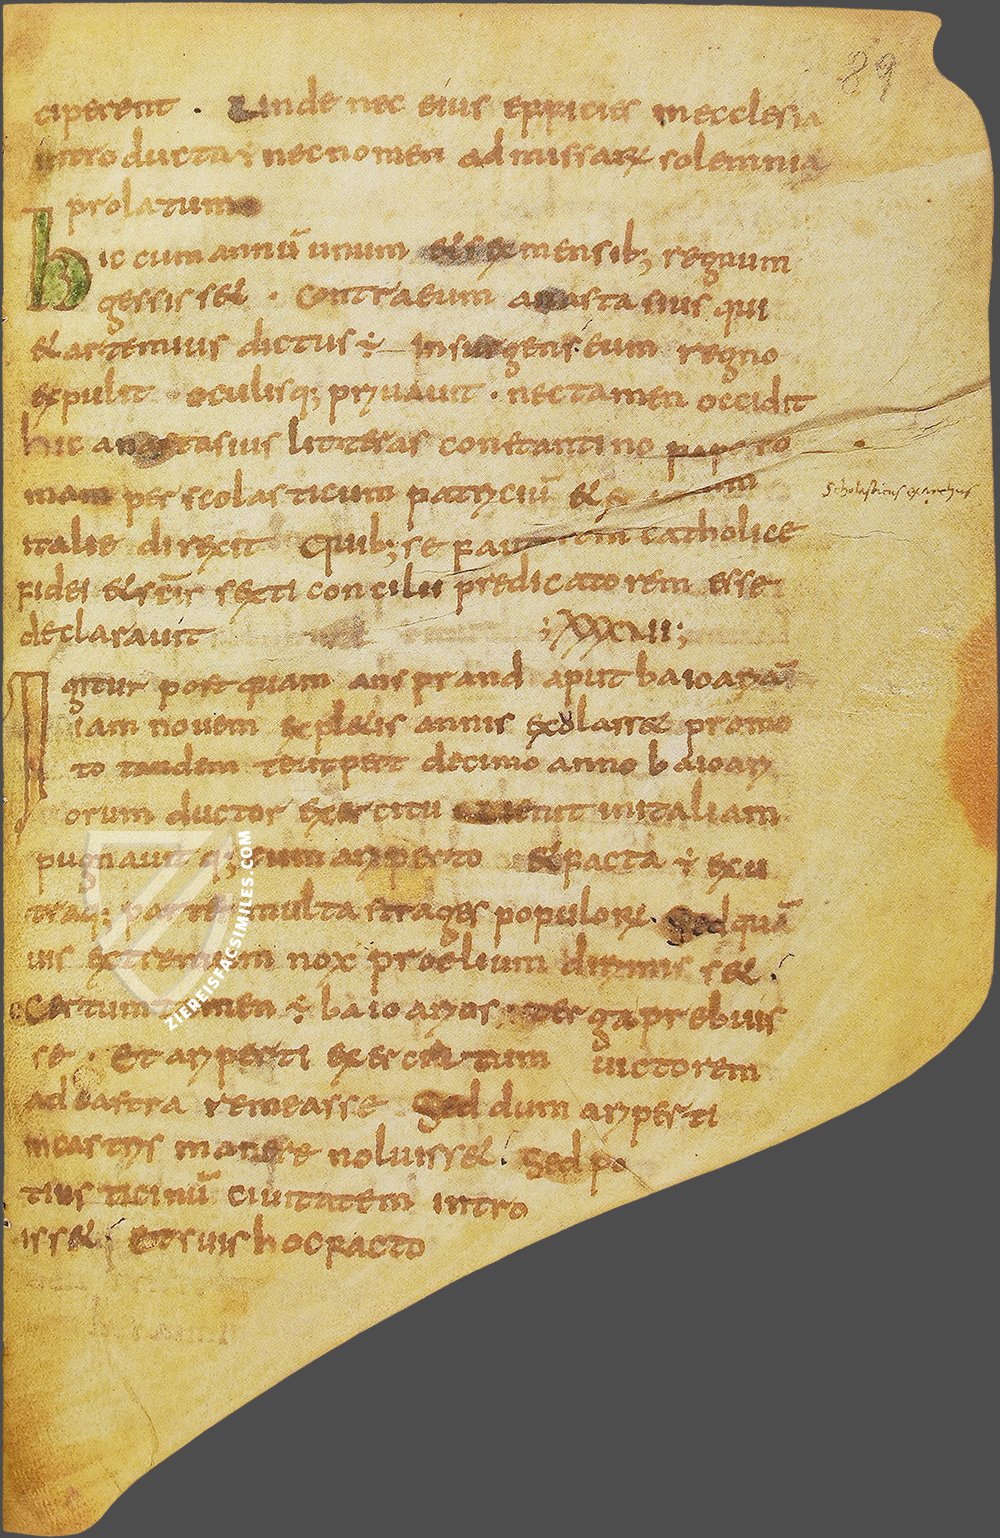 89
ciperent . Unde nec eius eppicies in ecclesia
introducta ÷ nec nomen ad missarũ solemnia
prolatum
hic cum annũ unum & sex mensib; regnum
gessisset . Contra eum anastasius qui
& artemius dictus ÷ insurgens eum regno
expulit oculisq; priuauit . nec tamen occidit
hic anastasius litteras constantino pape ro
mam per scolasticum patriciũ & ex
Scholasticus exarchus
italie direxit Quib; se fautorem catholice
fidei & sc̄i sexti concilii predicatorem esse
declarauit ; XXXVII ;
Igitur postquam ansprand aput baioariã
iam nouem expletis annis exolasset promo
to tandem teutpert decimo anno baioari
orum ductor exercitu in italiam
pugnauitq; cum aripert o & facta ÷ exu
traq; parte multa strages populorũ . Sed quã
uis extremum nox proelium dirimis set .
Certum tamen ÷ baioarios terga prebuis
se . Et ariperti exercitum uictorem
ad castra remeasse Sed dum ariperti
in castris manere noluisset . Sed po
tius ticinũ ciuitatem intro
isset ; Et suis hoc facto
ZIEREISFACSIMILES.COM